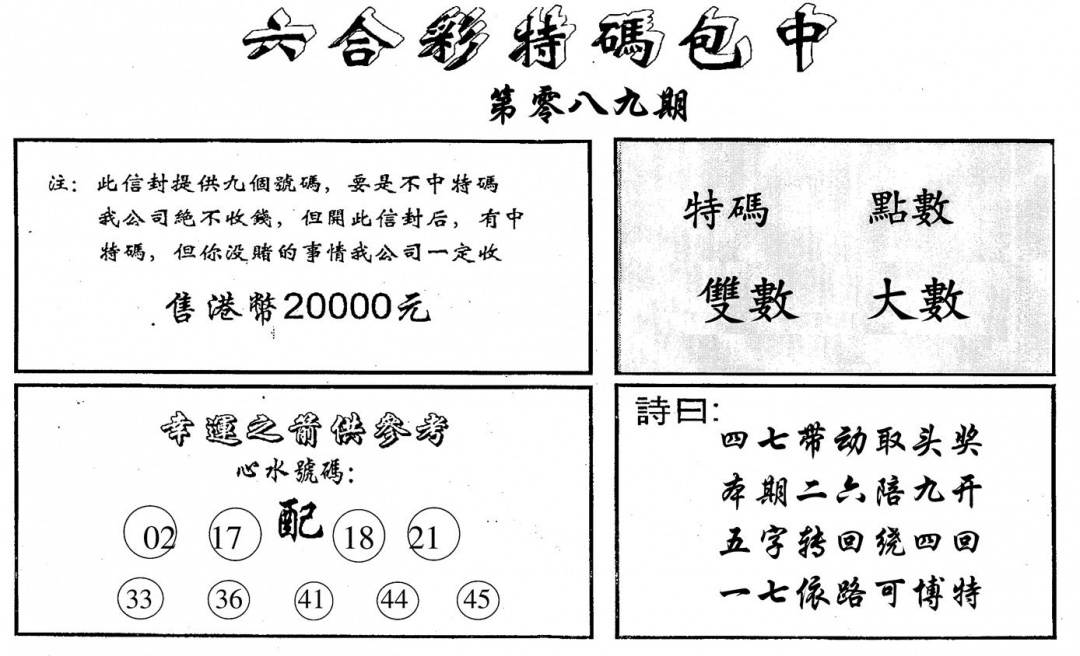 六合彩特碼包中
第零八九期
注：此信封提供九個號碼，要是不中特碼
我公司絕不收錢，但開此信封后，有中
特碼，但你没賭的事情我公司一定收
售港幣20000元
特碼 點數
雙數 大數
幸運之箭供參考
心水號碼：
配
02 17 18 21
33 36 41 44 45
詩曰：
四七带动取头奖
本期二六陪九开
五字转回绕四回
一七依路可博特